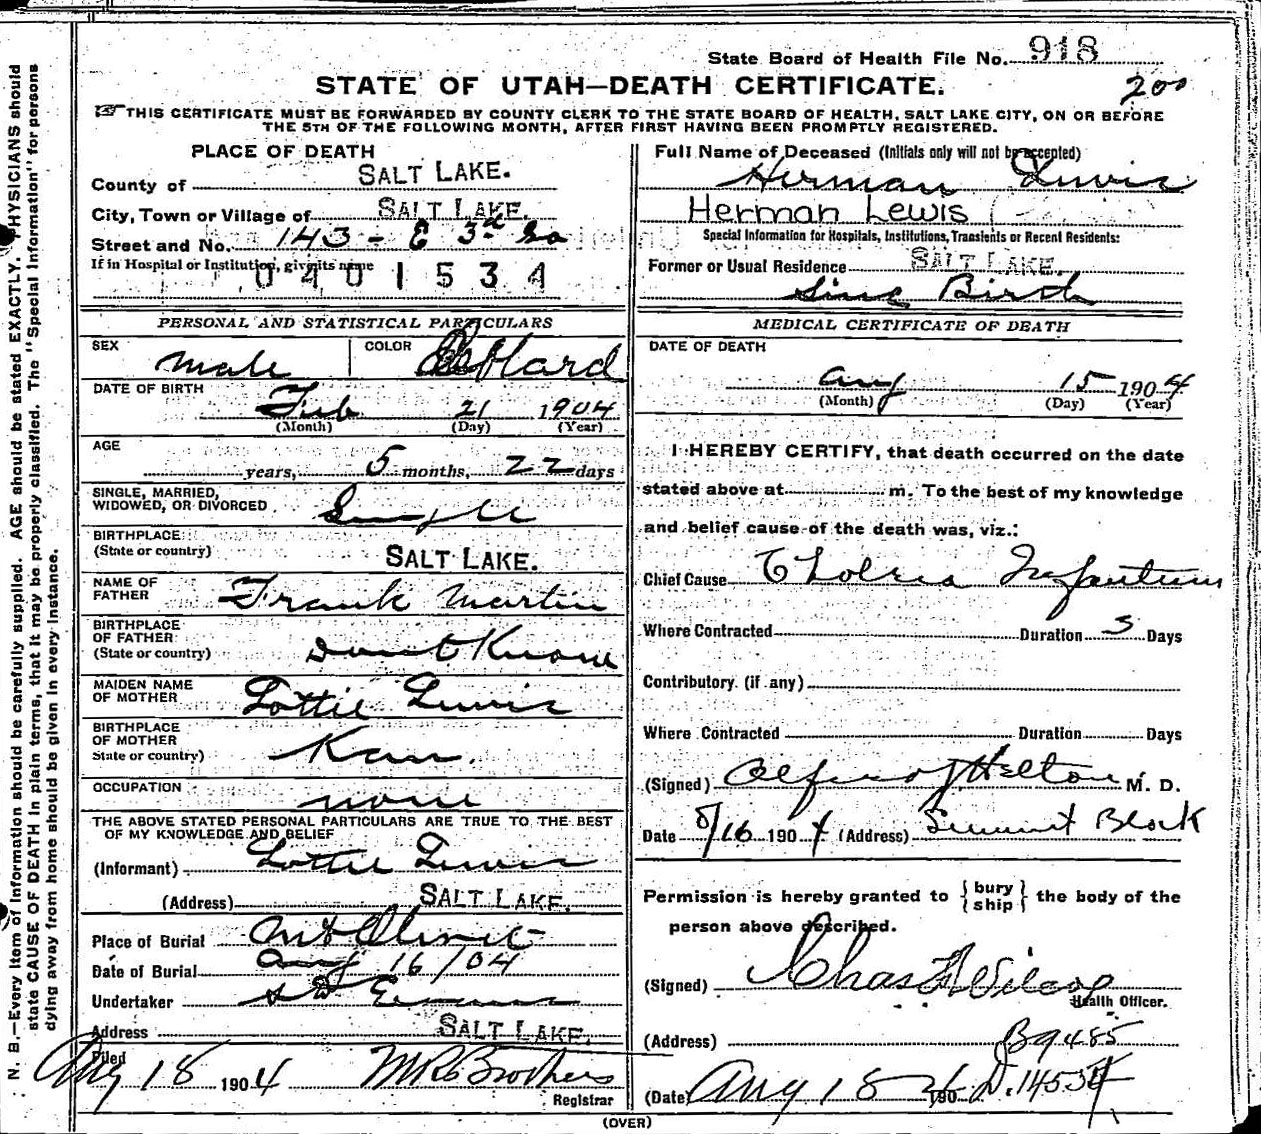 State Board of Health File No. 918
STATE OF UTAH—DEATH CERTIFICATE.
200
THIS CERTIFICATE MUST BE FORWARDED BY COUNTY CLERK TO THE STATE BOARD OF HEALTH, SALT LAKE CITY, ON OR BEFORE
THE 5TH OF THE FOLLOWING MONTH, AFTER FIRST HAVING BEEN PROMPTLY REGISTERED.
PLACE OF DEATH
County of SALT LAKE.
City, Town or Village of SALT LAKE.
Street and No. 143 - E 3d So
If in Hospital or Institution, give its name
0401534
PERSONAL AND STATISTICAL PARTICULARS
SEX Male COLOR
DATE OF BIRTH
Feb 21 1904
(Month) (Day) (Year)
AGE
years, 5 months, 22 days
SINGLE, MARRIED,
WIDOWED, OR DIVORCED Single
BIRTHPLACE
(State or country) SALT LAKE.
NAME OF
FATHER Frank Martin
BIRTHPLACE
OF FATHER
(State or country) Dont Know
MAIDEN NAME
OF MOTHER Lottie Lewis
BIRTHPLACE
OF MOTHER
State or country) Kan.
OCCUPATION none
THE ABOVE STATED PERSONAL PARTICULARS ARE TRUE TO THE BEST
OF MY KNOWLEDGE AND BELIEF
(Informant) Lottie Lewis
(Address) SALT LAKE.
Place of Burial Mt Olivet
Date of Burial Aug 16/04
Undertaker S D Evans
Address SALT LAKE.
Filed
Aug 18 1904
Registrar
Full Name of Deceased (Initials only will not be accepted)
Herman Lewis
Herman Lewis
Special Information for Hospitals, Institutions, Transients or Recent Residents:
Former or Usual Residence SALT LAKE.
Sinc Birth
MEDICAL CERTIFICATE OF DEATH
DATE OF DEATH
Aug 15 1904
(Month) (Day) (Year)
I HEREBY CERTIFY, that death occurred on the date
stated above at m. To the best of my knowledge
and belief cause of the death was, viz.:
Chief Cause Cholera Infantum
Where Contracted Duration 3 Days
Contributory (if any)
Where Contracted Duration Days
(Signed) M. D.
Date 8/16 1904 (Address) Block
Permission is hereby granted to { bury ship } the body of the
person above described.
(Signed) Chas Wilcox
Health Officer.
(Address) B9485
(Date) Aug 18 190 D.14554
(OVER)
N. B.—Every item of information should be carefully supplied. AGE should be stated EXACTLY. PHYSICIANS should
state CAUSE OF DEATH in plain terms, that it may be properly classified. The "Special Information" for persons
dying away from home should be given in every instance.